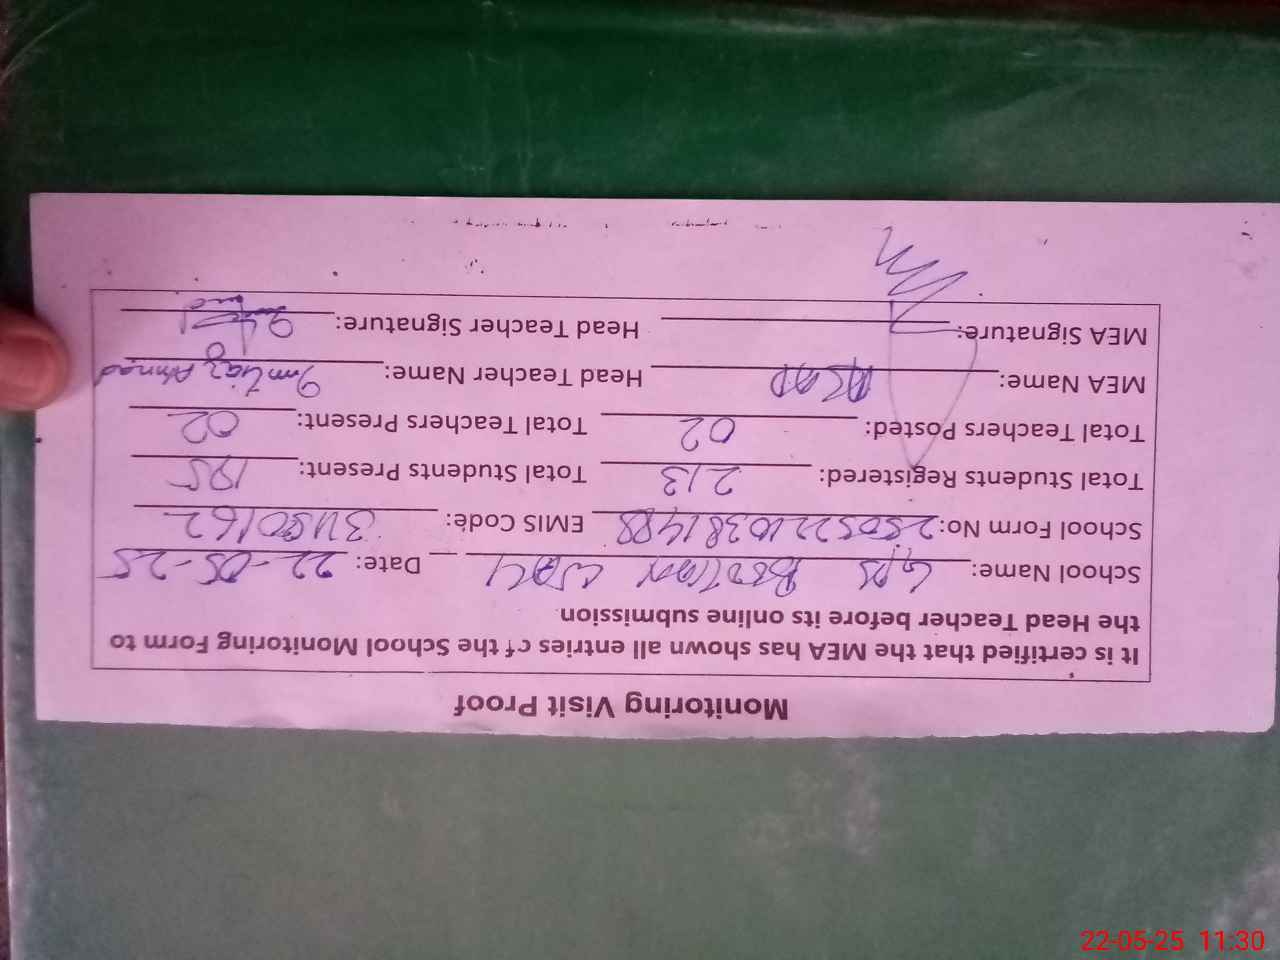 Monitoring Visit Proof
It is certified that the MEA has shown all entries of the School Monitoring Form to
the Head Teacher before its online submission.
School Name: GPS Date: 22-05-25
School Form No: EMIS Code:
Total Students Registered: 213 Total Students Present: 195
Total Teachers Posted: 02 Total Teachers Present: 02
MEA Name: ASAD Head Teacher Name: Imtiaz Ahmad
MEA Signature: Head Teacher Signature:
22-05-25 11:30